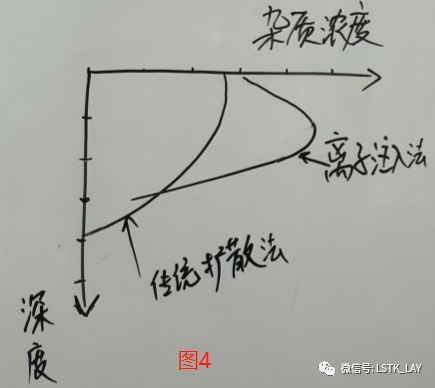 杂质浓度
离子注入法
传统扩散法
深度
图4
微信号: LSTK_LAY